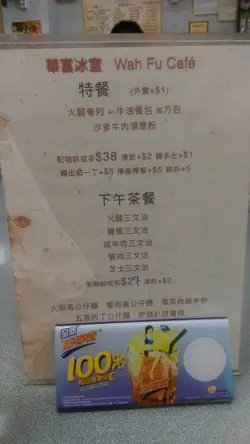 華富冰室 Wah Fu Café
特餐 (外賣+$1)
火腿奄列 + 牛油餐包 或方包
沙爹牛肉湯意粉
配咖啡或茶$38 凍飲+$2 轉多士+$1
轉出前一丁+$5
下午茶餐
火腿三文治
雞蛋三文治
咸牛肉三文治
餐肉三文治
芝士三文治
配咖啡或茶$27 凍飲+$2
火腿湯公仔麵
五香肉丁公仔麵
100%